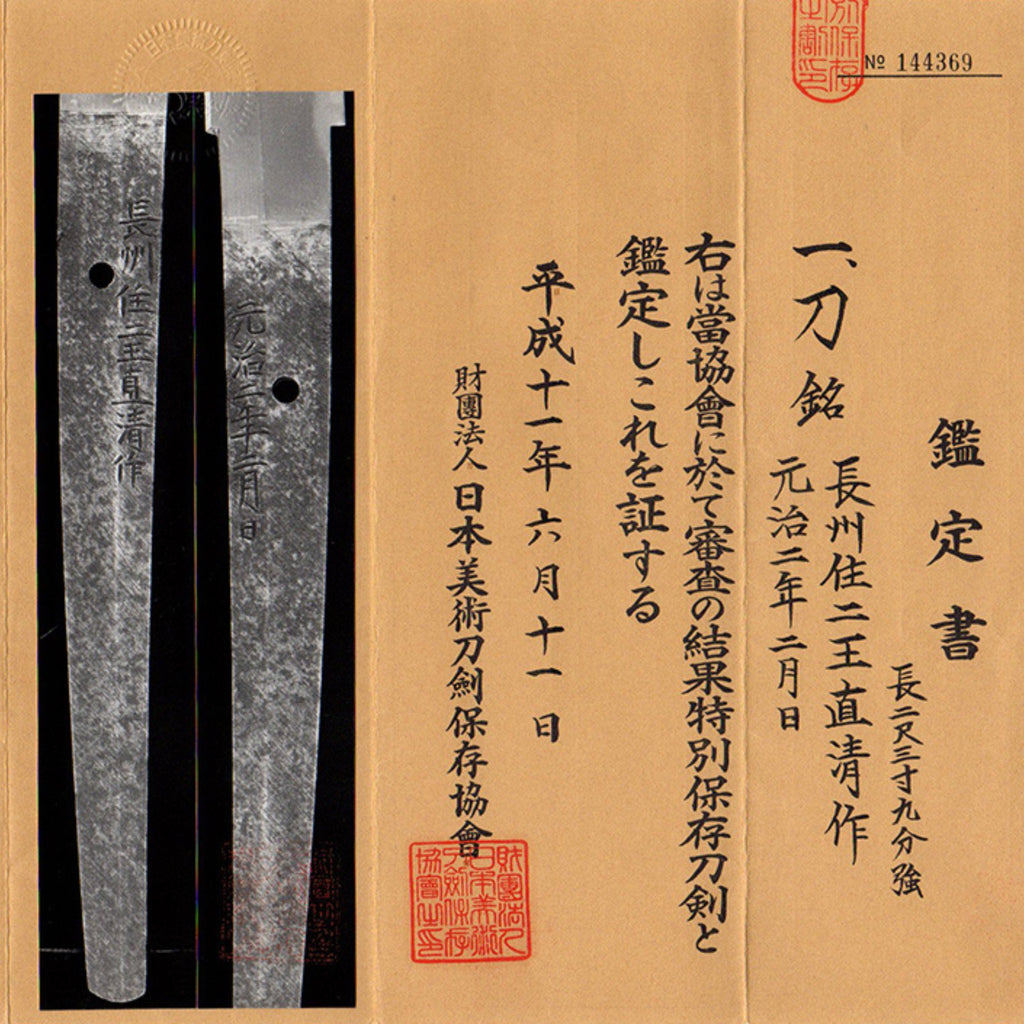 № 144369
鑑定書
長二尺三寸九分強
一、刀 銘
長州住二王直清作
元治二年二月日
右は當協會に於て審査の結果特別保存刀剣と
鑑定しこれを証する
平成十一年六月十一日
財團法人日本美術刀劍保存協會
財團法人日本美術刀劍保存協會之印
元治二年二月日
長州住二王直清作